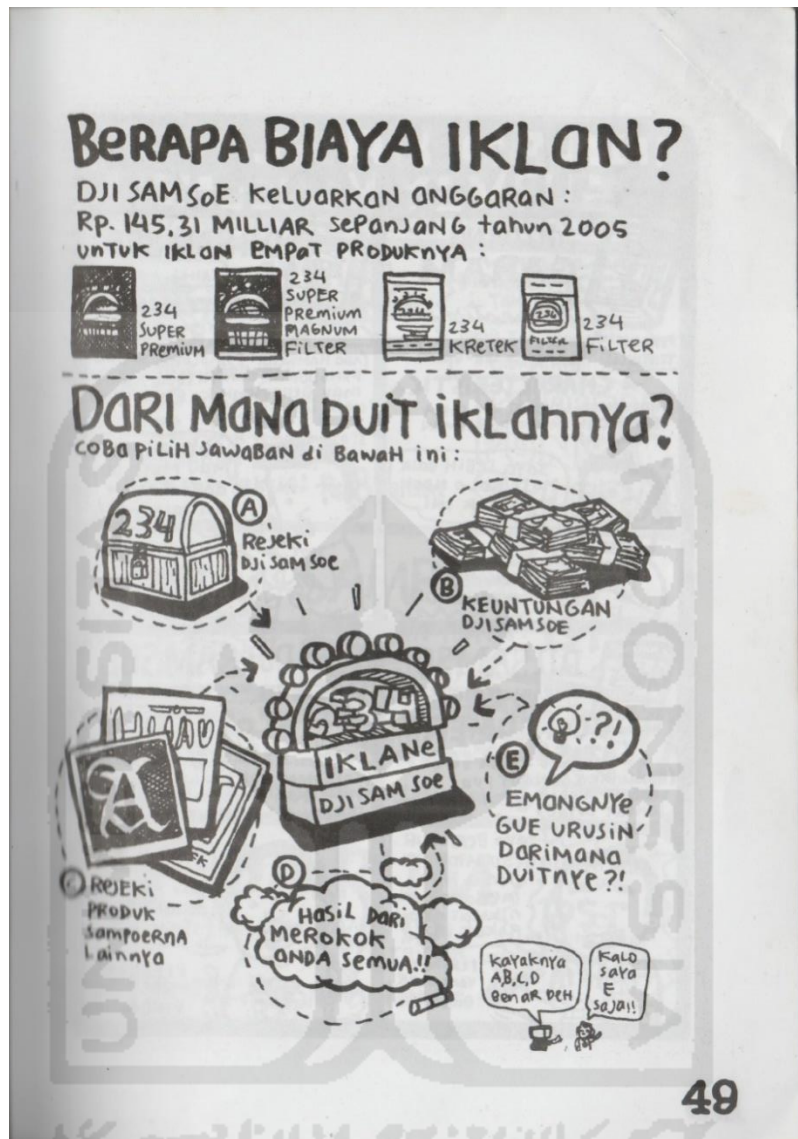 BERAPA BIAYA IKLAN?
DJI SAM SOE KELUARKAN ANGGARAN :
Rp. 145,31 MILLIAR SEPANJANG tahun 2005
UNTUK IKLAN EMPAT PRODUKNYA :
234
SUPER
PREMIUM
234
SUPER
PREMIUM
MAGNUM
FILTER
234
KRETEK
FILTER
234
FILTER
DARI MANA DUIT IKLANNYA?
COBA PILIH JAWABAN di BAWAH ini :
234
A
REJEKI
DJI SAM SOE
B
KEUNTUNGAN
DJI SAM SOE
234
IKLANE
DJI SAM SOE
HIJAU
A
C
REJEKI
PRODUK
SAMPOERNA
Lainnya
D
HASIL DARI
MEROKOK
ANDA SEMUA!!
?!
E
EMANGNYE
GUE URUSIN
DARIMANA
DUITNYE?!
Kayaknya
A,B,C,D
BENAR DEH
KALO
SAYA
E
SAJA!!
UNIVERSITAS
ISLAM
INDONESIA
49